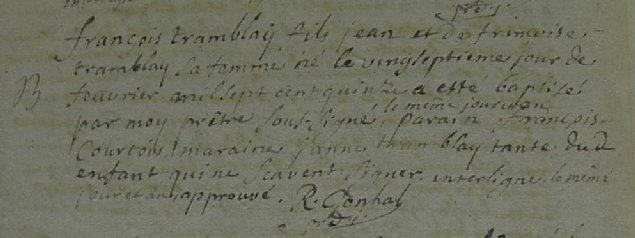 ptre
françois tramblay fils jean et de frinçoise
tramblay sa femme né le vingseptieme jour de
B
feuvrier mil sept cent quinze a esté baptisé
le même jour et an
par moy prêtre soussigné, parain françois
Courtois, maraine janne tramblay tante dud
enfant qui ne scavent signer. interligne le même
jour et an approuvé. R.
ptre